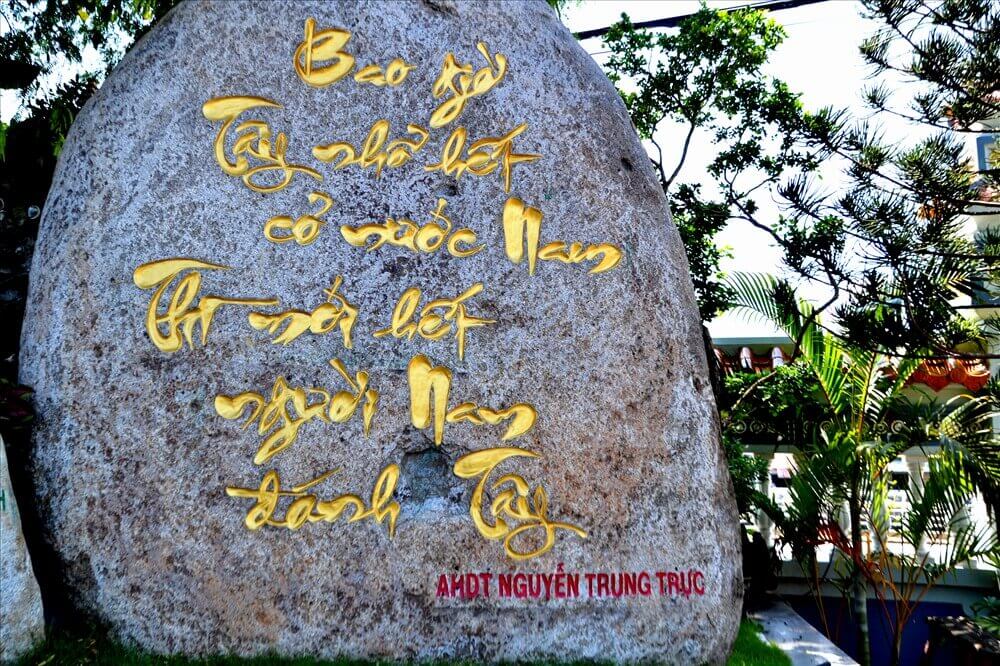 Bao giờ
Tây nhổ hết
cỏ nước Nam
Thì mới hết
người Nam
đánh Tây
AHDT NGUYỄN TRUNG TRỰC